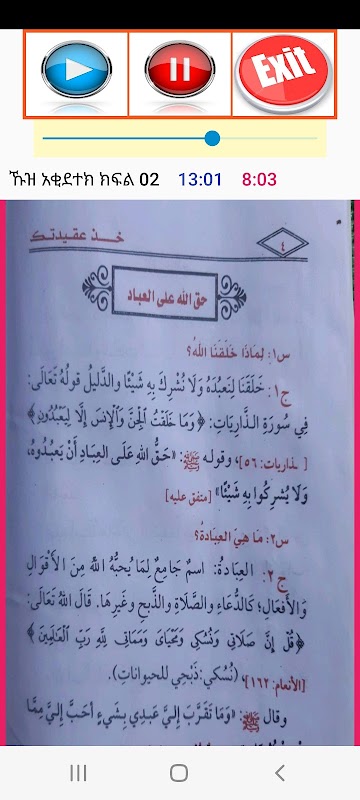 Exit
ኹዝ አቂደተክ ክፍል 02 13:01 8:03
خذ عقيدتك
٤
حق الله على العباد
س١: لِمَاذَا خَلَقَنَا اللهُ؟
ج١: خَلَقَنَا لِنَعْبُدَهُ وَلَا نُشْرِكَ بِهِ شَيْئًا والدَّلِيلُ قولُهُ تَعَالَى:
فِي سُورَةِ الذَّارِيَاتِ: ﴿وَمَا خَلَقْتُ الْجِنَّ وَالْإِنسَ إِلَّا لِيَعْبُدُونِ﴾
ذاريات: ٥٦]، وقولـه ﷺ: «حَـقُّ اللهِ عَلَـى العِبَـادِ أَنْ يَعبُـدُوهُ،
وَلَا يُشْرِكُوا بِهِ شَيْئًا» [متفق عليه]
س٢: مَا هِيَ العِبَادَةُ؟
ج٢: العِبَادَةُ: اسمٌ جَامِعٌ لِمَا يُحبُّهُ اللهُ مِنَ الأَقْوَالِ
وَالأَفْعَالِ؛ كَالدُّعَاءِ وَالصَّلَاةِ وَالذَّبحِ وغَيرِهَا. قَالَ اللهُ تَعَالَى:
﴿قُلْ إِنَّ صَلَاتِي وَنُسُكِي وَمَحْيَايَ وَمَمَاتِي لِلَّهِ رَبِّ الْعَالَمِينَ﴾
[الأنعام: ١٦٢]، (نُسُكي: ذَبْحِي للحيوانات).
وقال ﷺ: «وَمَا تَقَرَّبَ إِلَيَّ عَبدِي بِشَيءٍ أَحَبَّ إِلَيَّ مِمَّا